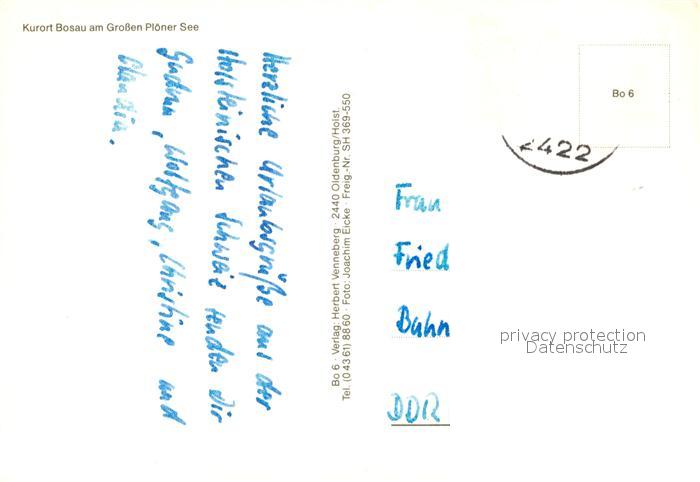 Kurort Bosau am Großen Plöner See
Herzliche Urlaubsgrüße aus der
Holsteinischen Schweiz senden Dir
Gudrun, Wolfgang, Christine und
Claudia.
Bo 6 · Verlag: Herbert Venneberg · 2440 Oldenburg/Holst.
Tel. (0 43 61) 88 60 · Foto: Joachim Eicke · Freig.-Nr. SH 369-550
Bo 6
2422
Frau
Fried
Bahn
DDR
privacy protection
Datenschutz